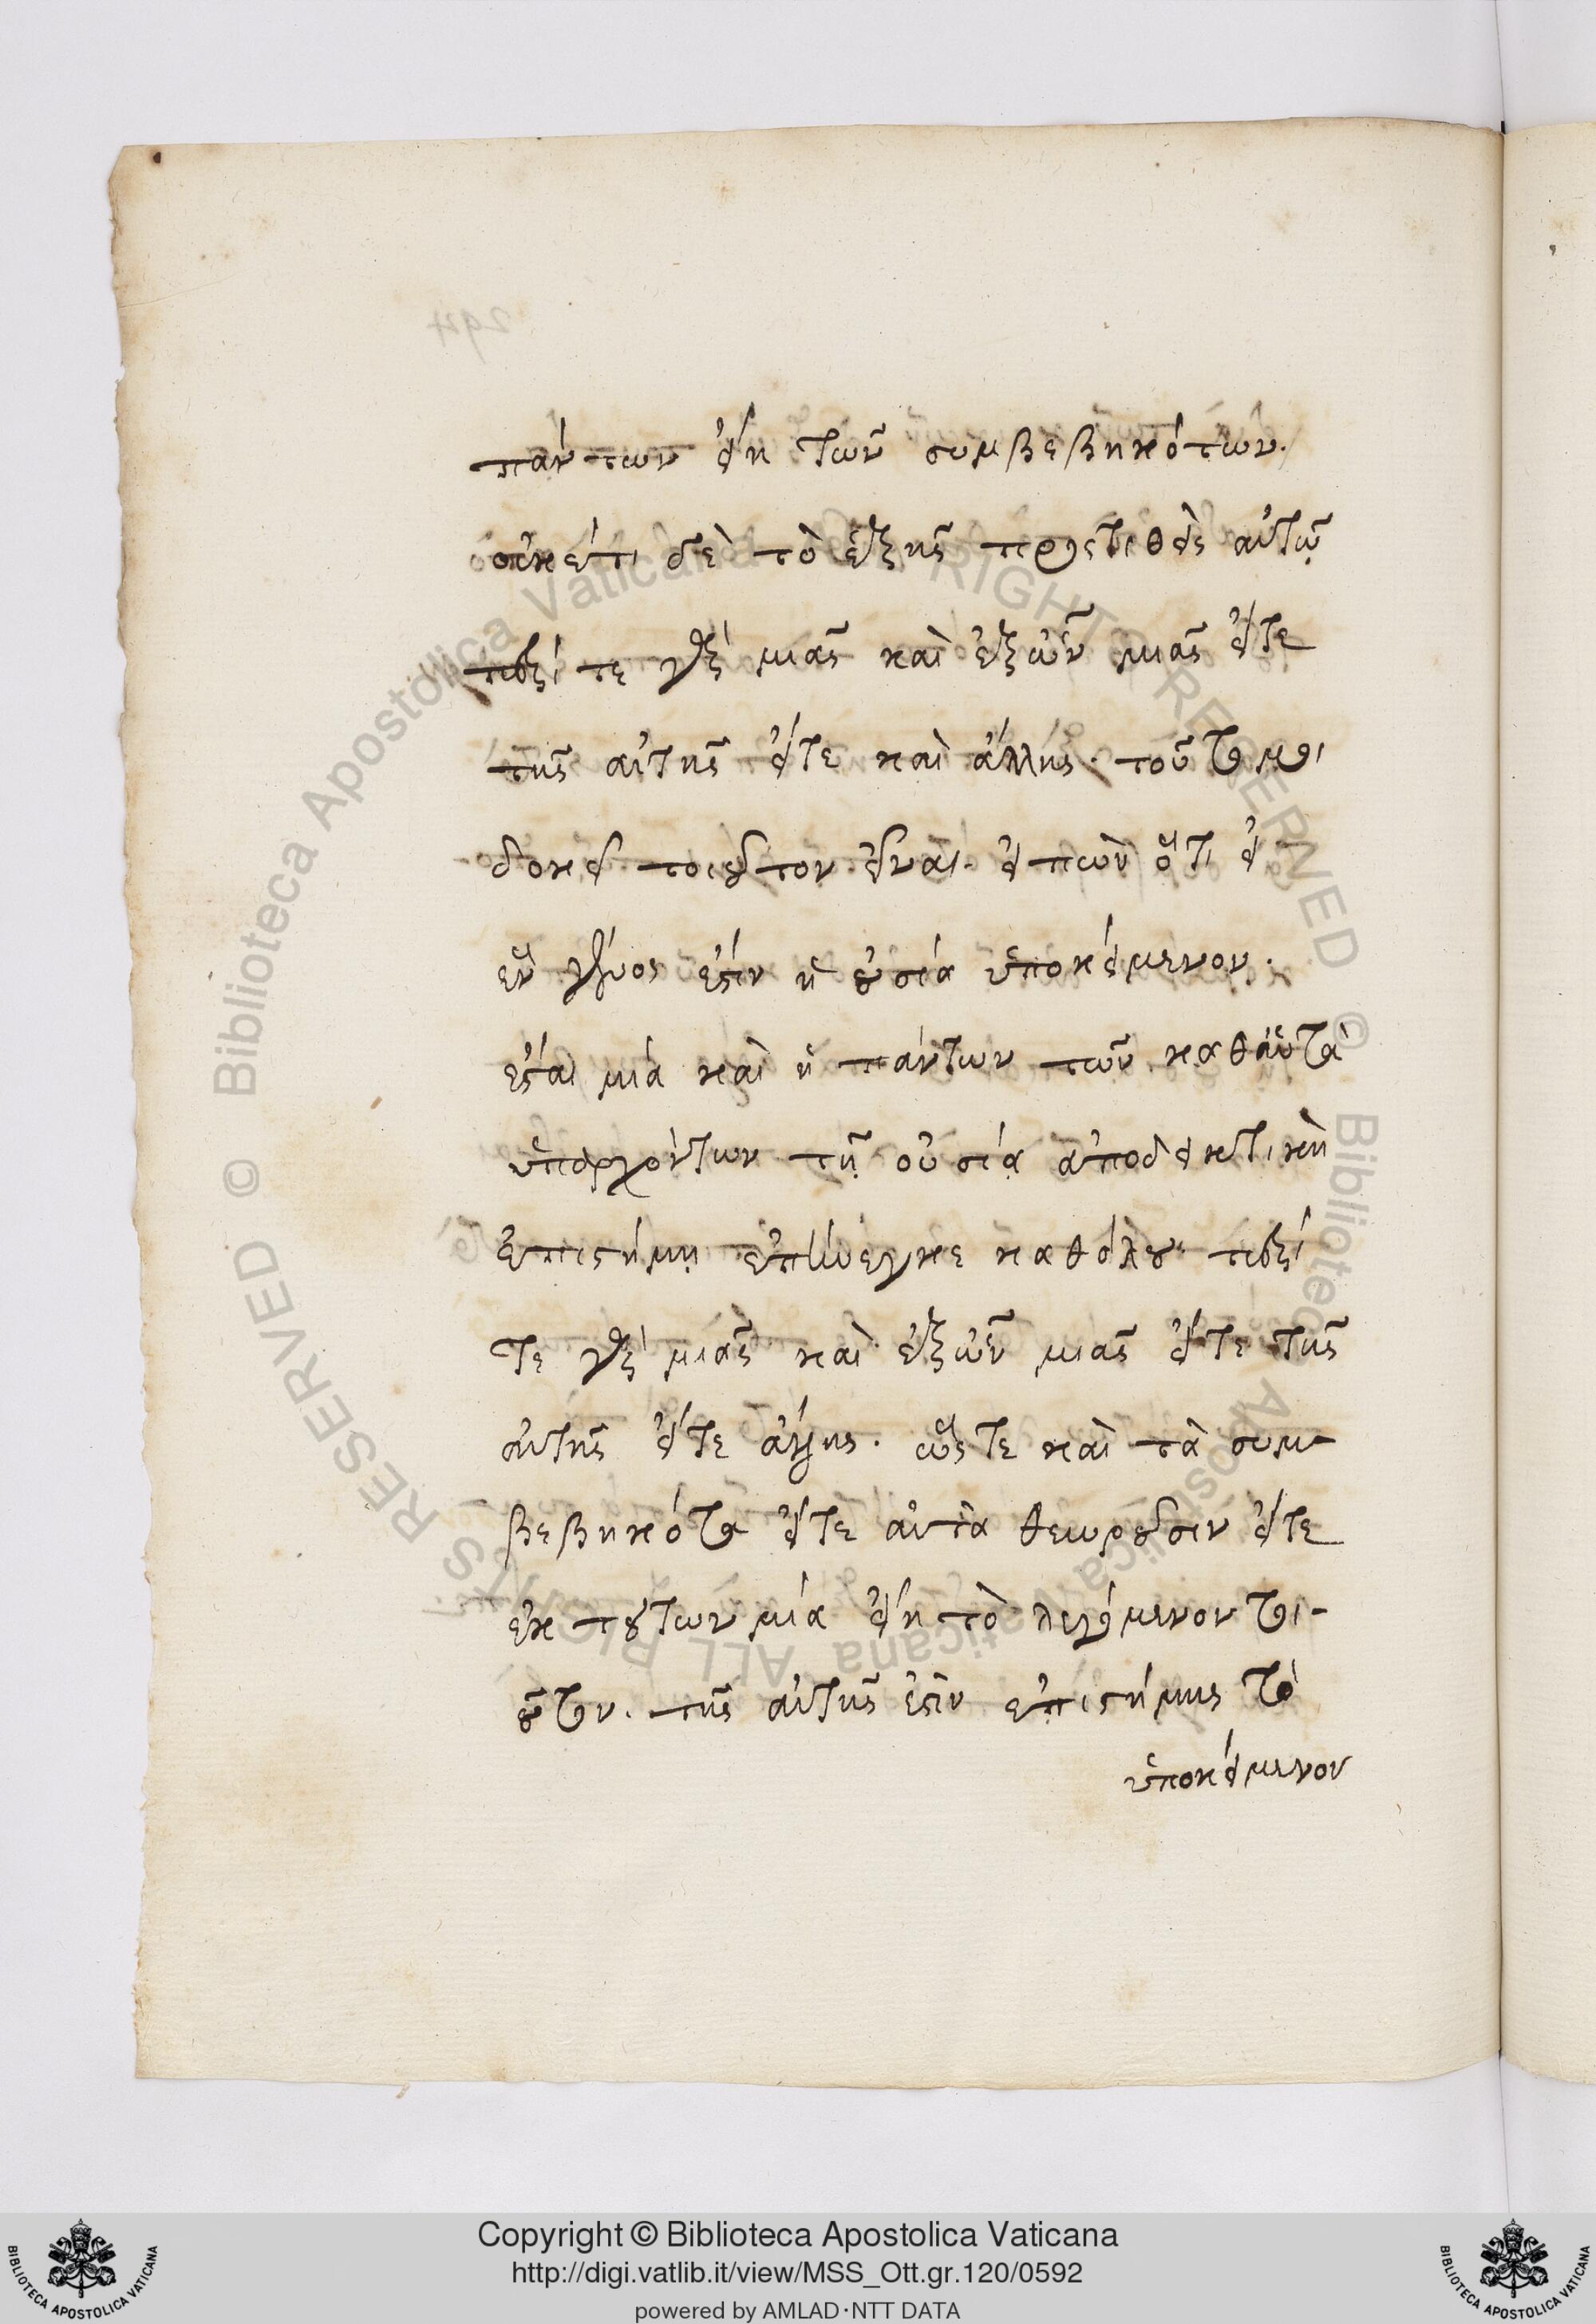 πάντων εἴη τῶν συμβεβηκότων.
οὐκέτι δὲ τὸ ἑξῆς προστιθεὶς αὐτῷ
περί τε γὰρ μιᾶς καὶ ἐξ ὧν μιᾶς εἴτε
τῆς αὐτῆς εἴτε καὶ ἄλλης. τοῦτό μοι
δοκεῖ τοιοῦτον εἶναι. εἰπὼν ὅτι εἰ
ἓν γένος ἐστὶν ἡ οὐσία ὑποκείμενον.
ἔσται μία καὶ ἡ πάντων τῶν καθ' αὑτὰ
ὑπαρχόντων τῇ οὐσίᾳ ἀποδεικτικὴ
ἐπιστήμη ἐπήνεγκε καθόλου· περί
τε γὰρ μιᾶς καὶ ἐξ ὧν μιᾶς εἴτε τῆς
αὐτῆς εἴτε ἄλλης. ὥστε καὶ τὰ συμ-
βεβηκότα εἴτε αὐτὰ θεωροῦσιν εἴτε
ἐκ τούτων μία εἴη τὸ λεγόμενον τοι-
οῦτον. τῆς αὐτῆς ἐστὶν ἐπιστήμης τὸ
ὑποκείμενον
Copyright © Biblioteca Apostolica Vaticana
http://digi.vatlib.it/view/MSS_Ott.gr.120/0592
powered by AMLAD·NTT DATA